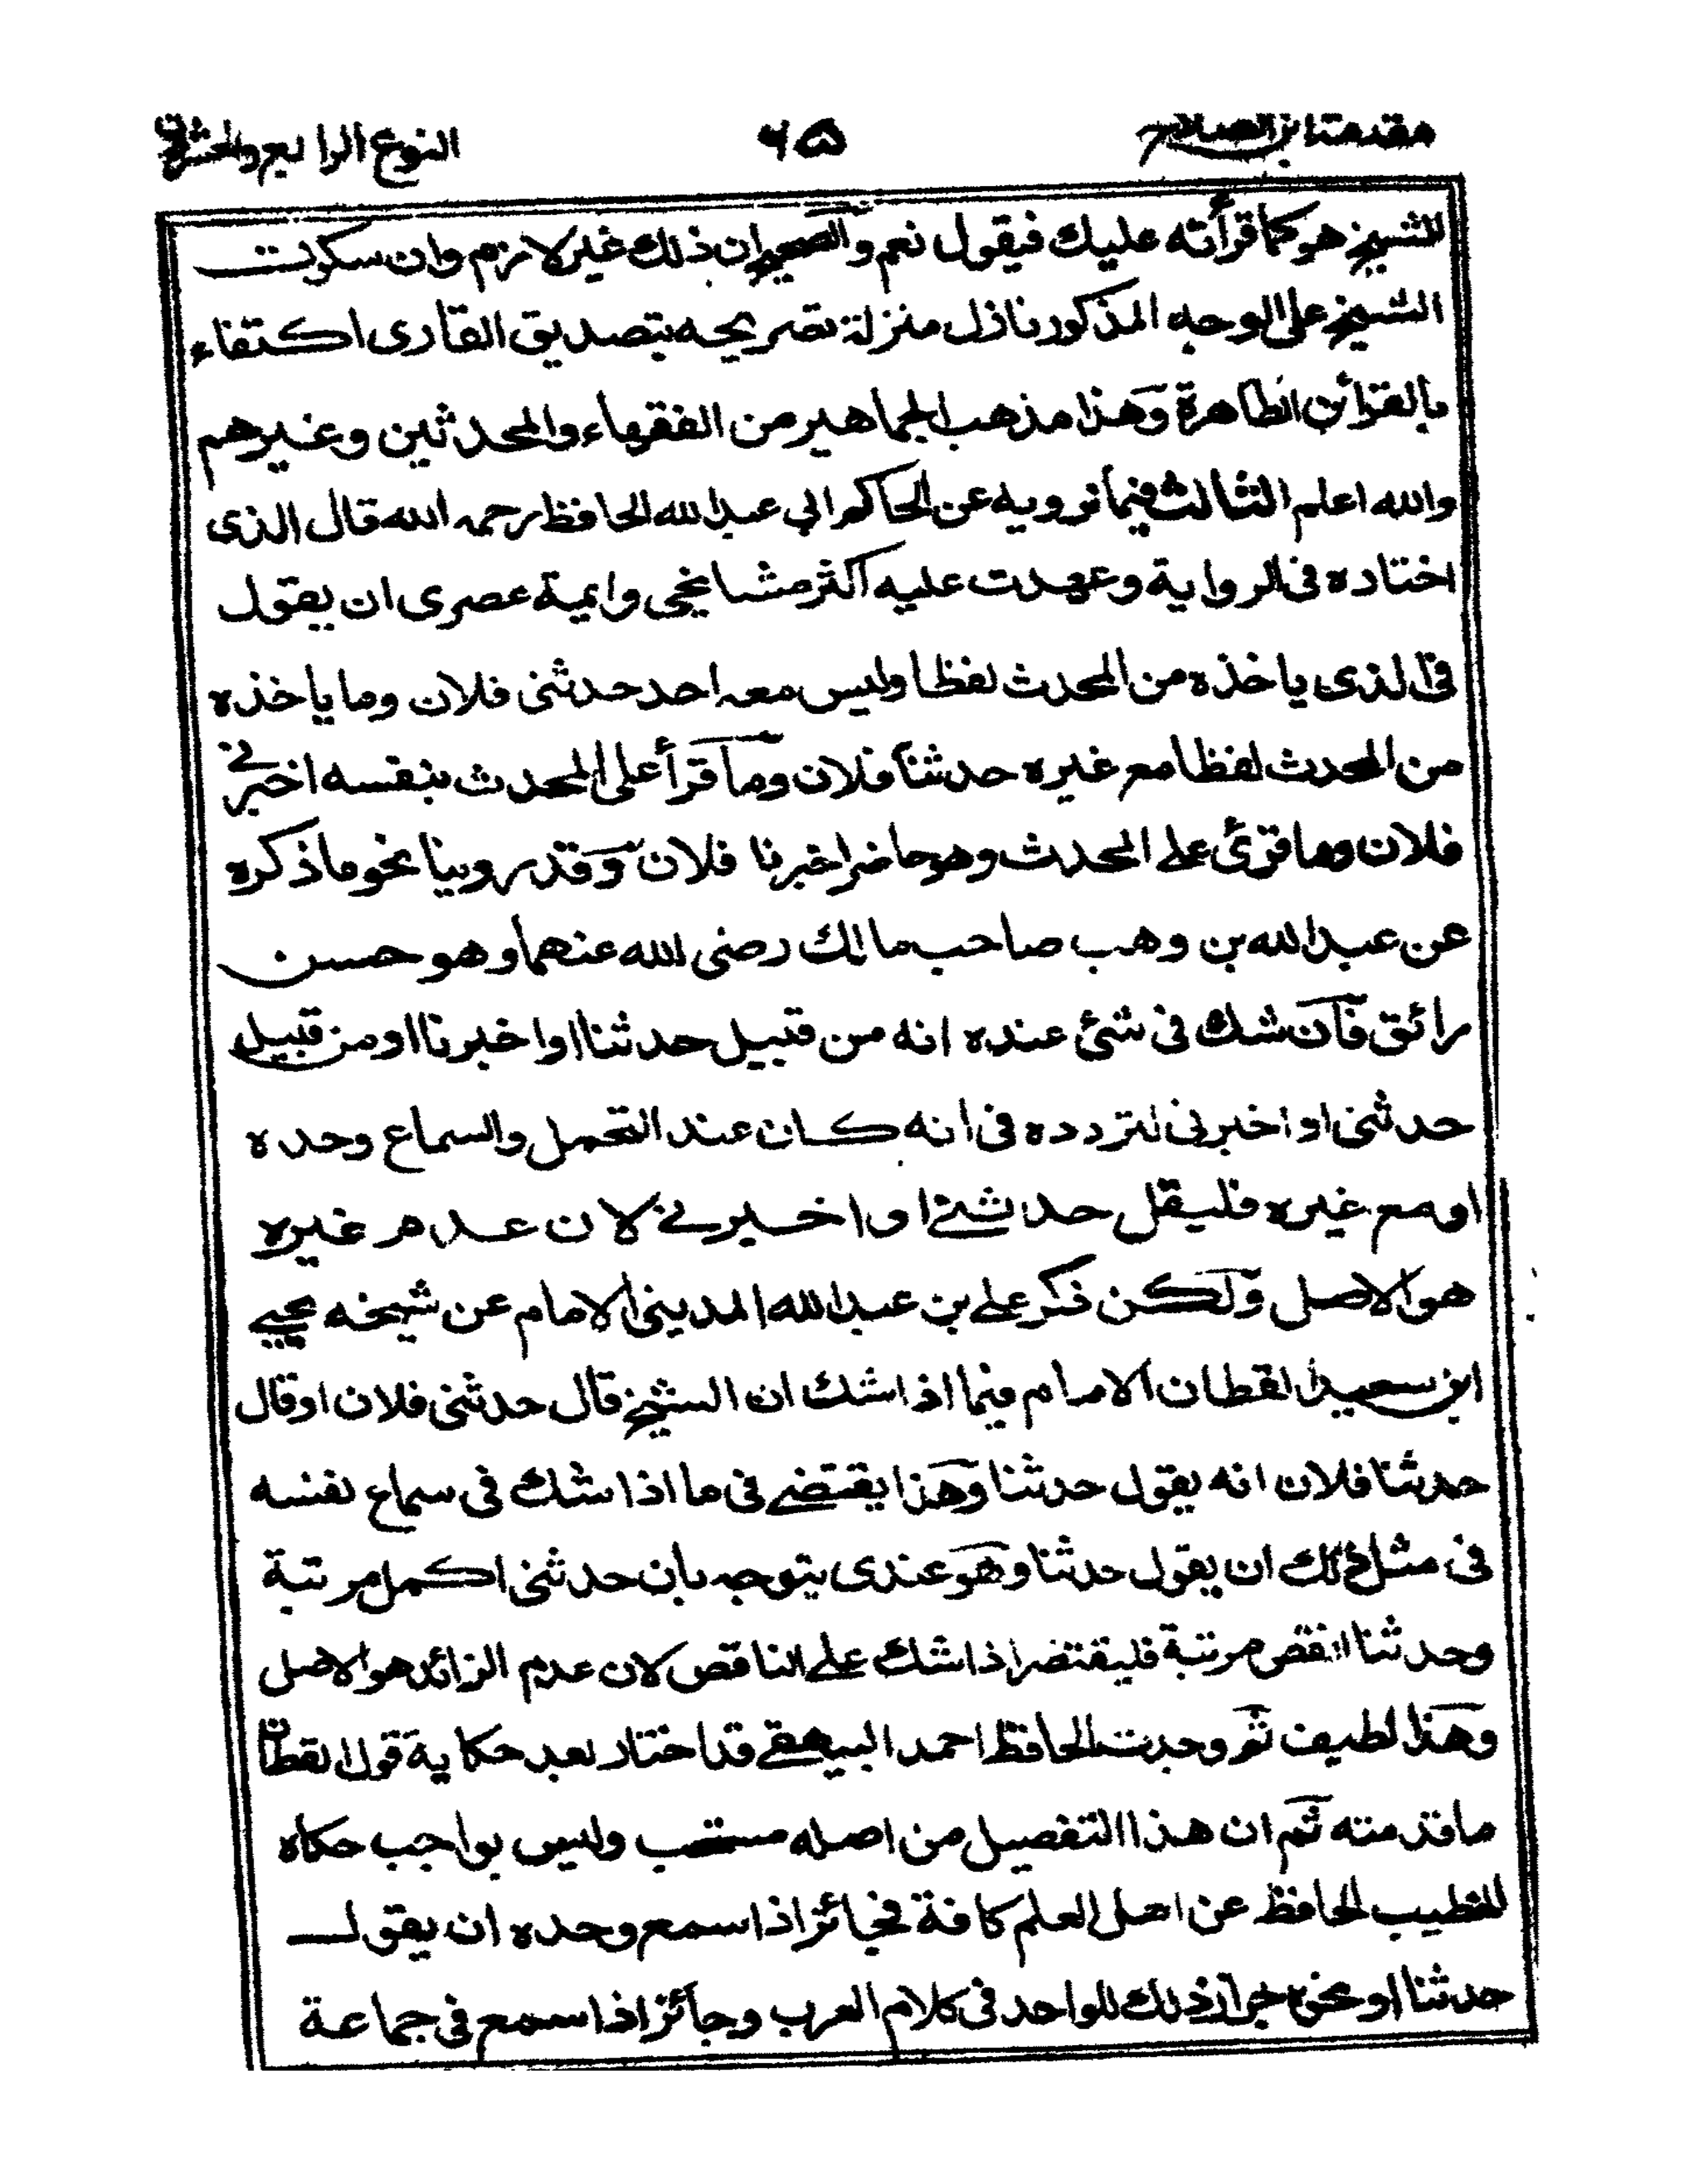 مقدمة ابن الصلاح ٦٥ النوع الرابع والعشرون
للشيخ هو كما قرأته عليك فيقول نعم والصحيح ان ذلك غير لازم وان سكوت
الشيخ على الوجه المذكور نازل منزلة تصريحه بتصديق القارى اكتفاء
بالقرائن الظاهرة وهذا مذهب الجماهير من الفقهاء والمحدثين وغيرهم
والله اعلم الثالث فيما نرويه عن الحاكم ابي عبد الله الحافظ رحمه الله قال الذى
اختاره فى الرواية وعهدت عليه اكثر مشايخى وايمة عصرى ان يقول
فى الذى ياخذه من المحدث لفظا وليس معه احد حدثنى فلان وما ياخذه
من المحدث لفظا مع غيره حدثنا فلان وما قرأ على المحدث بنفسه اخبرنے
فلان وما قرئ على المحدث وهو حاضر اخبرنا فلان وقد روينا نحو ما ذكره
عن عبد الله بن وهب صاحب مالك رضى الله عنهما وهو حسن
رائق فان شك فى شئ عنده انه من قبيل حدثنا او اخبرنا او من قبيل
حدثنى او اخبرنى لتردده فى انه كان عند التحمل والسماع وحده
او مع غيره فليقل حدثنے او اخبرنے لان عدم غيره
هو الاصل ولكن ذكر علے بن عبد الله المدينى الامام عن شيخه يحيے
ابن سعيد القطان الامام فيما اذا شك ان الشيخ قال حدثنى فلان او قال
حدثنا فلان انه يقول حدثنا وهذا يقتضے فى ما اذا شك فى سماع نفسه
فى مثل ذلك ان يقول حدثنا وهو عندى يتوجه بان حدثنى اكمل مرتبة
وحدثنا انقص مرتبة فليقتصر اذا شك علے الناقص لان عدم الزائد هو الاصل
وهذا لطيف ثم وجدت الحافظ احمد البيهقے قد اختار بعد حكاية قول القطان
ما قدمته ثم ان هذا التفصيل من اصله مستحب وليس بواجب حكاه
الخطيب الحافظ عن اهل العلم كافة فجائز اذا سمع وحده ان يقول
حدثنا او نحوه لجواز ذلك للواحد فى كلام العرب وجائز اذا سمع فى جماعة